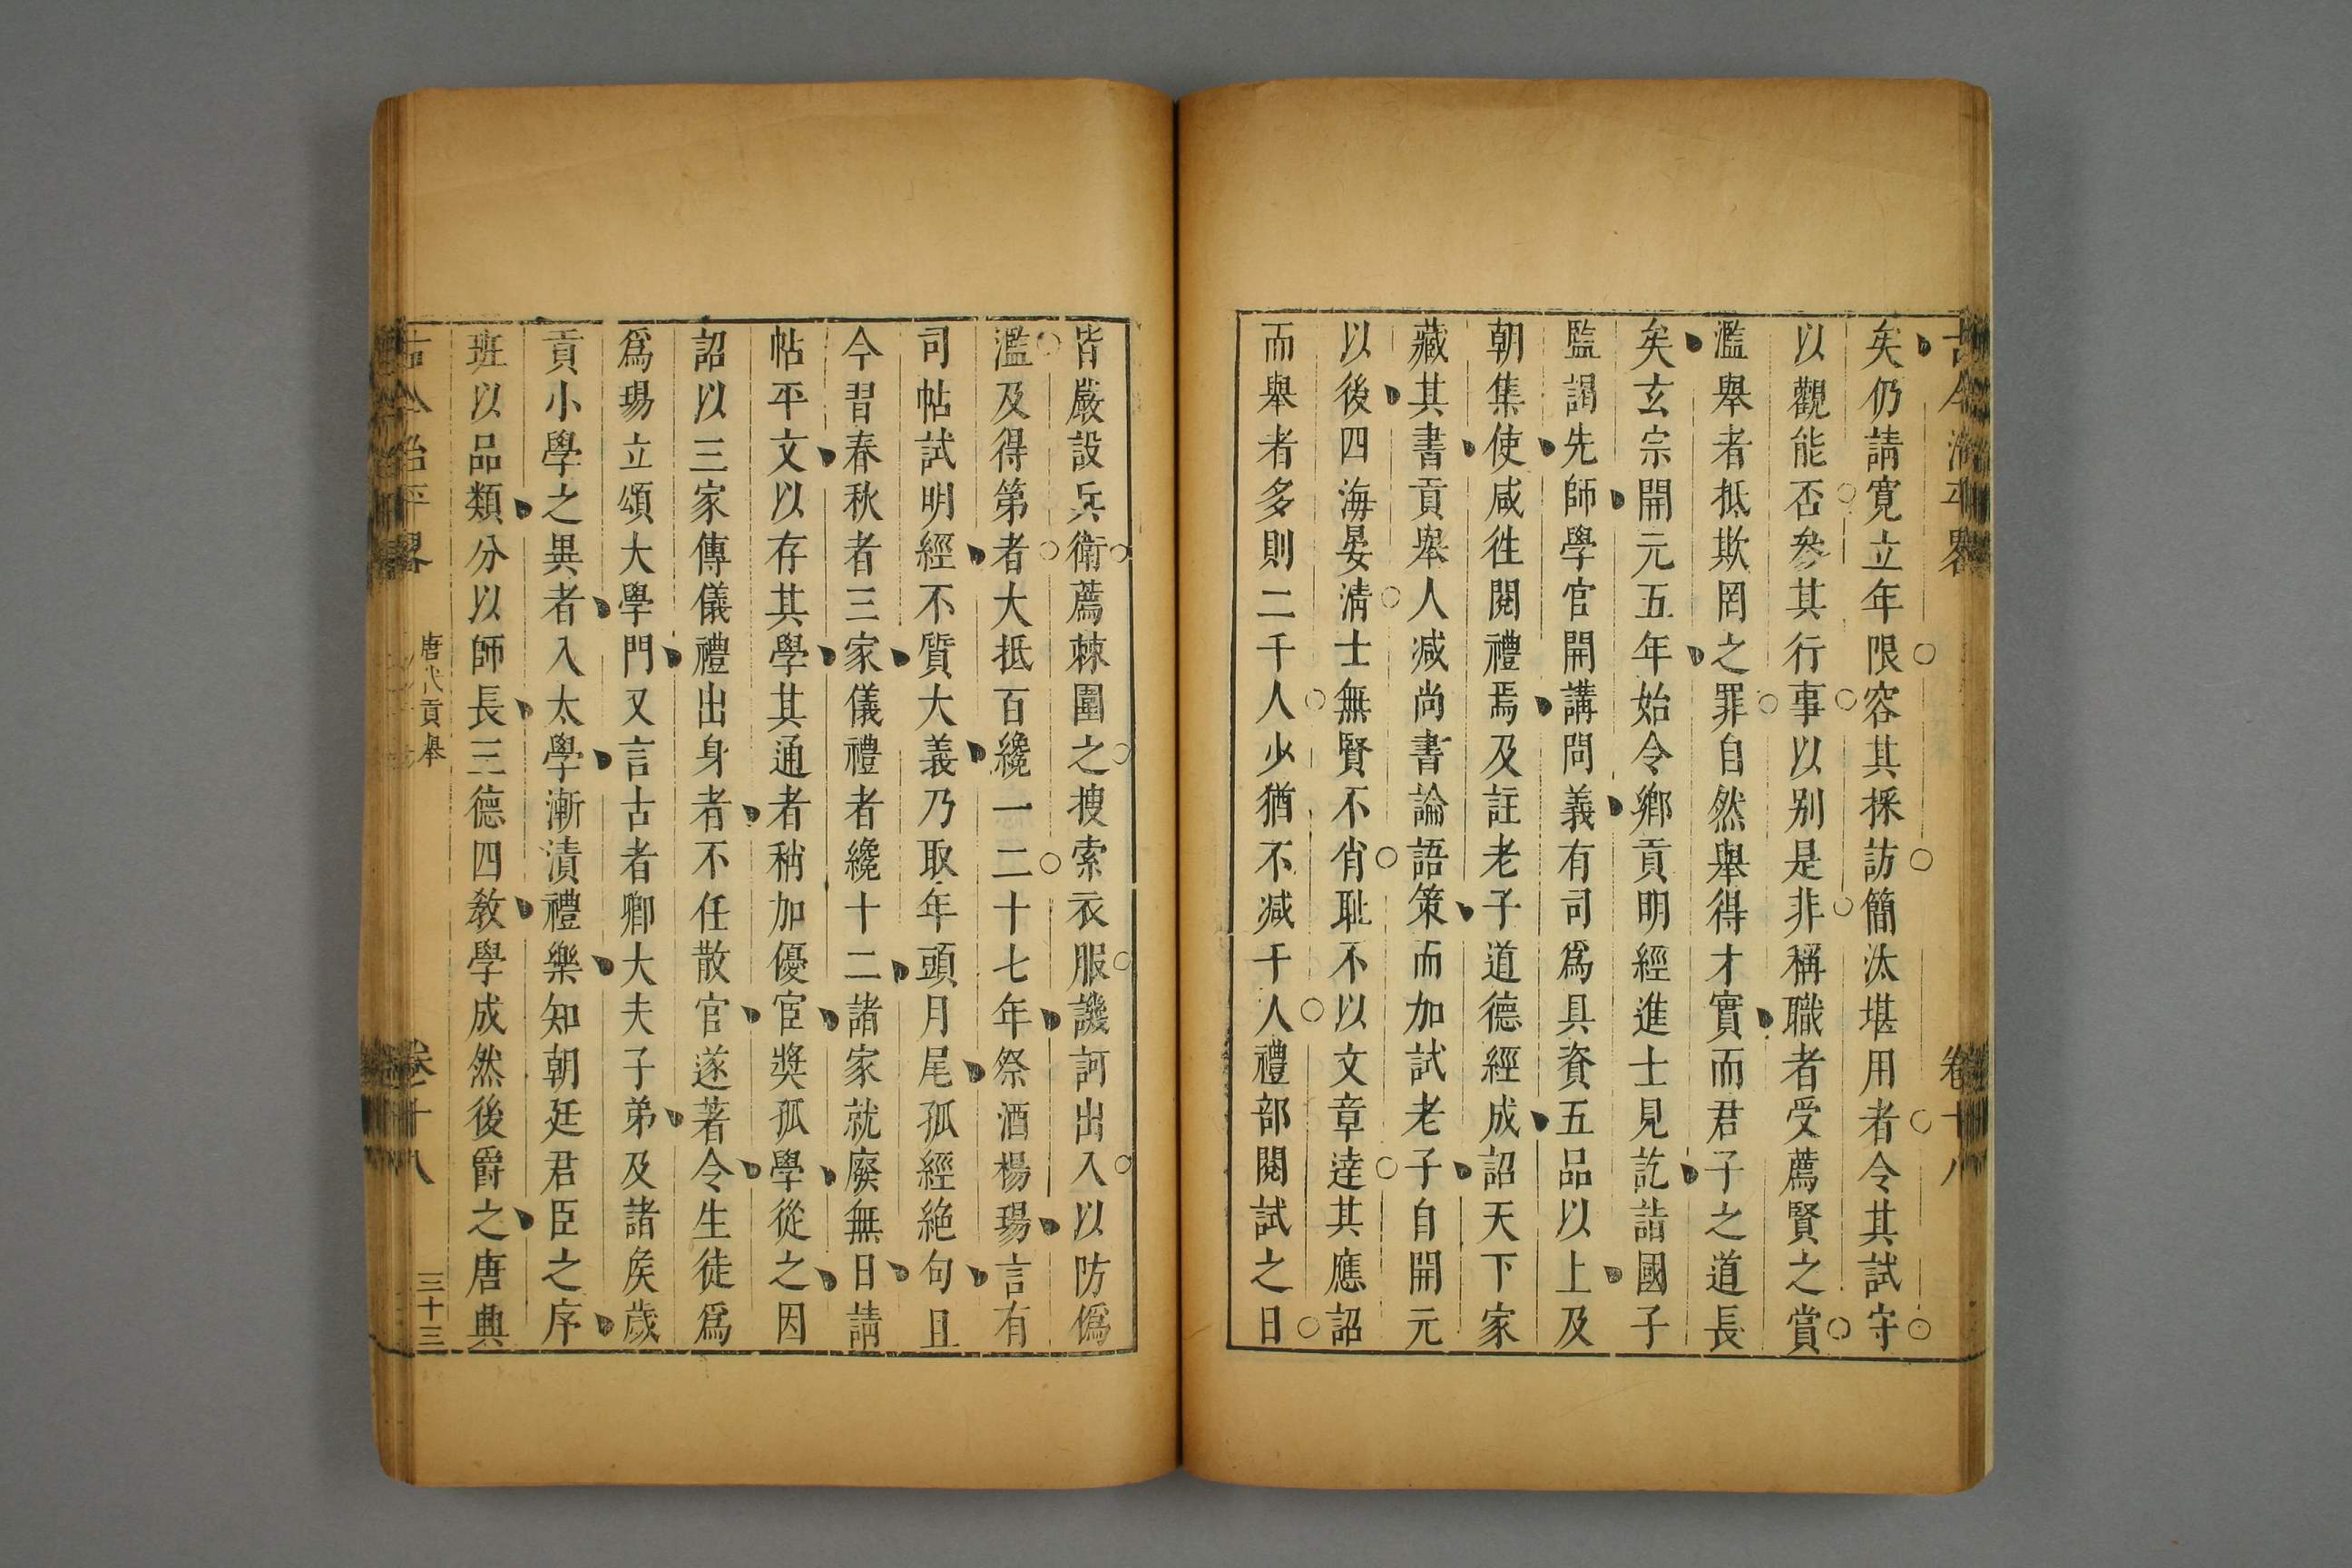 古今治平畧 卷十八
矣仍請寛立年限容其採訪簡汰堪用者令其試守
以觀能否參其行事以别是非稱職者受薦賢之賞
濫舉者抵欺罔之罪自然舉得才實而君子之道長
矣玄宗開元五年始令鄉貢明經進士見訖詣國子
監謁先師學官開講問義有司爲具資五品以上及
朝集使咸徃閱禮焉及註老子道德經成詔天下家
藏其書貢舉人减尚書論語策而加試老子自開元
以後四海晏淸士無賢不肖耻不以文章達其應詔
而舉者多則二千人少猶不减千人禮部閱試之日
皆嚴設兵衛薦棘圍之搜索衣服譏訶出入以防僞
濫及得第者大抵百纔一二十七年祭酒楊瑒言有
司帖試明經不質大義乃取年頭月尾孤經絶句且
今習春秋者三家儀禮者纔十二諸家就廢無日請
帖平文以存其學其通者稍加優宦奬孤學從之因
詔以三家傳儀禮出身者不任散官遂著令生徒爲
爲瑒立頌大學門又言古者卿大夫子弟及諸矦歲
貢小學之異者入太學漸漬禮樂知朝廷君臣之序
班以品類分以師長三德四敎學成然後爵之唐典
古今治平畧 唐代貢舉 卷十八 三十三